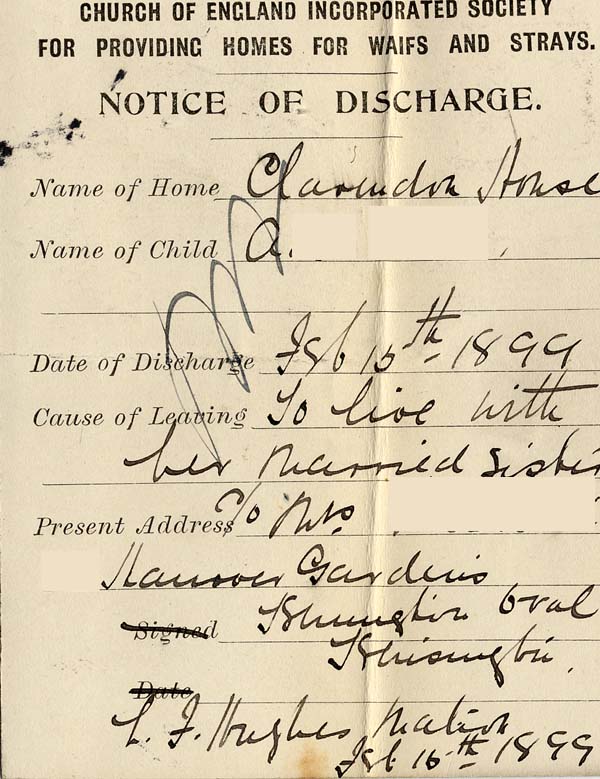 CHURCH OF ENGLAND INCORPORATED SOCIETY
FOR PROVIDING HOMES FOR WAIFS AND STRAYS.
NOTICE OF DISCHARGE.
Name of Home Clarendon House
Name of Child A.
Date of Discharge Feb 15th 1899
Cause of Leaving To live with
her married sister
Present Address c/o Mrs
Hanover Gardens
Signed Kennington Oval
Kennington.
Date
L. F. Hughes Matron
Feb 16th 1899